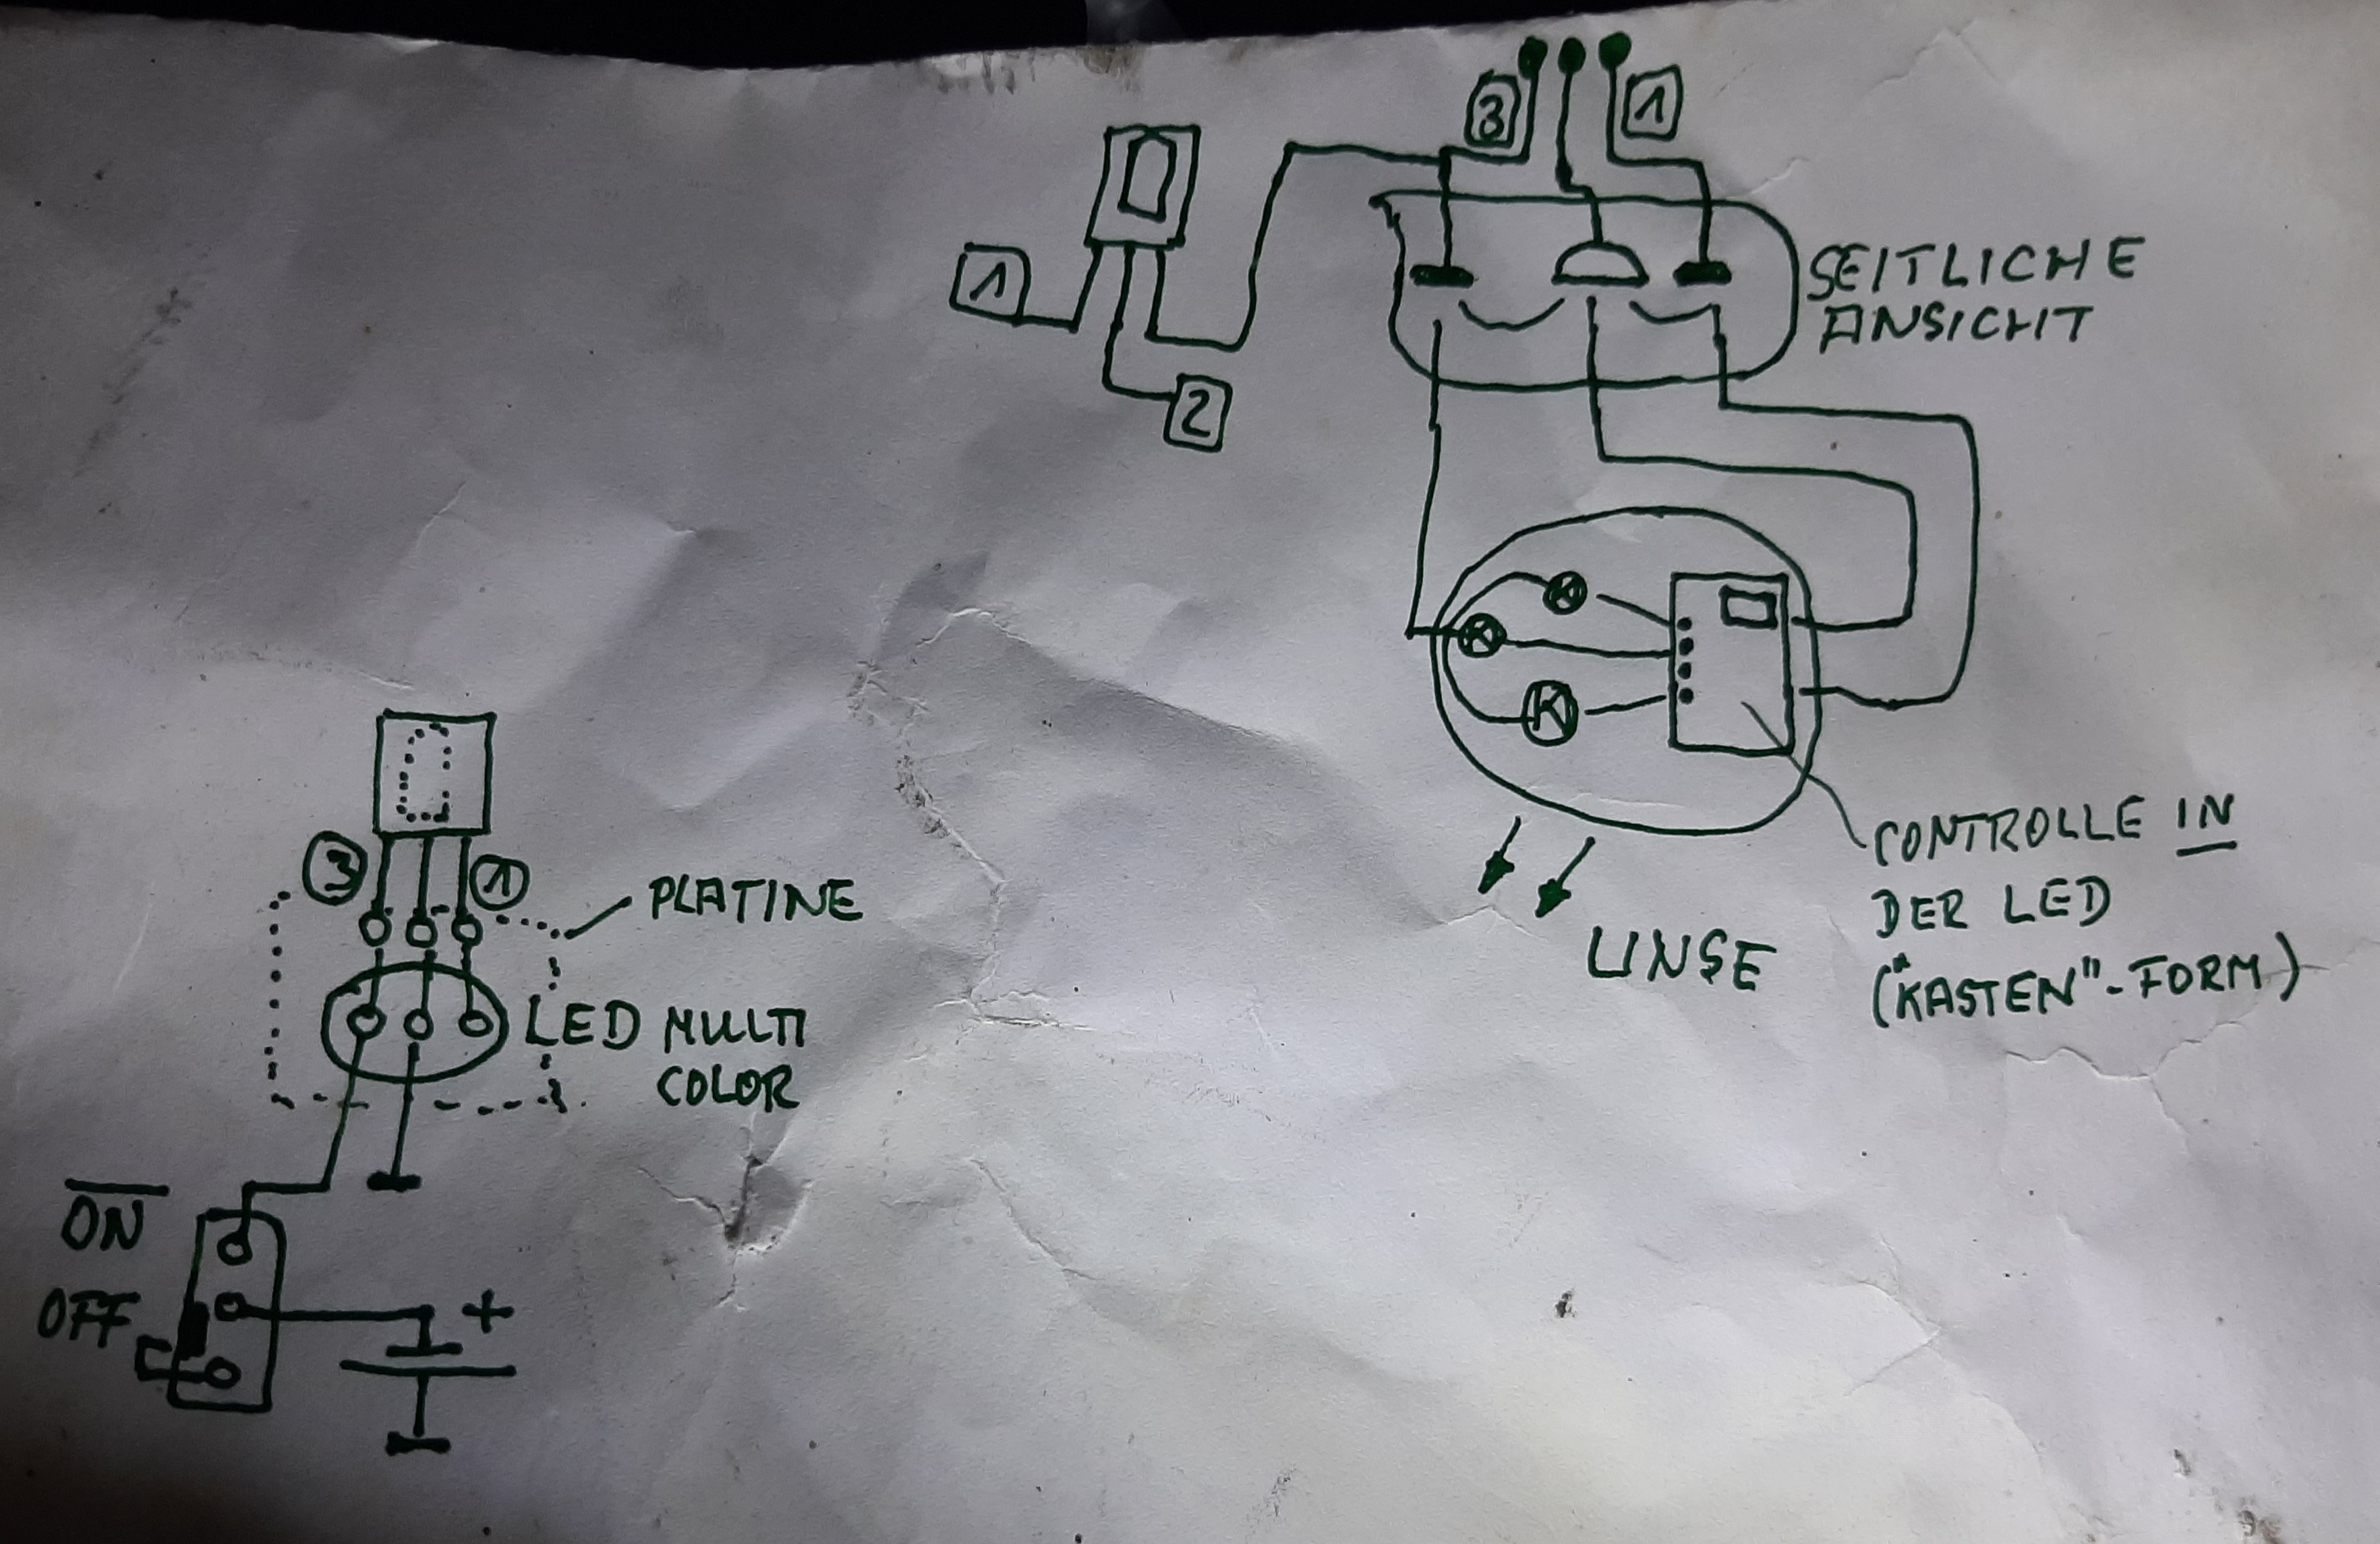 3
1
1
2
SEITLICHE
ANSICHT
K
K
K
CONTROLLE IN
DER LED
("KASTEN"-FORM)
LINSE
3
1
PLATINE
LED MULTI
COLOR
ON
OFF
+